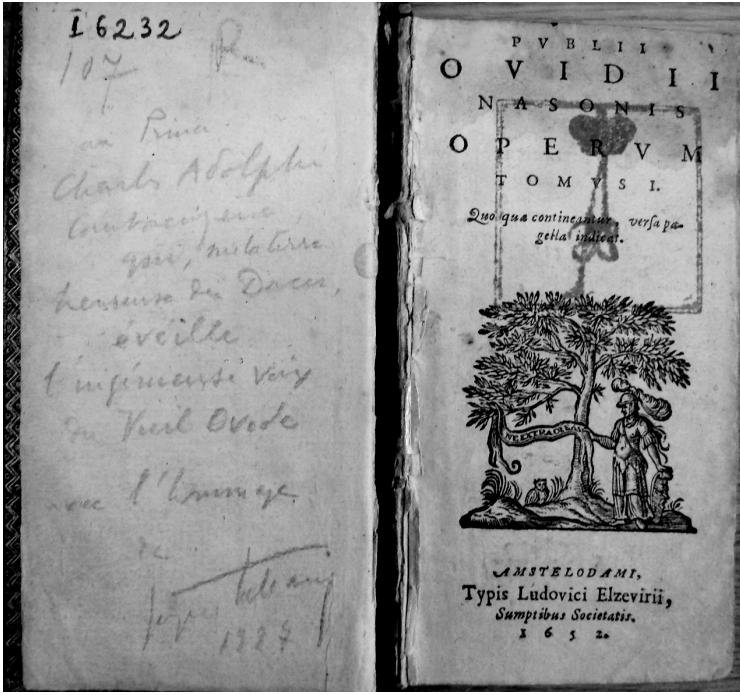 I6232
107
au Prince
Charles Adolphe
Cantacuzène,
qui, sur la terre
heureuse des Daces,
éveille
l'ingénieuse voix
du Vieil Ovide
avec l'hommage
de
1927
PVBLII
OVIDII
NASONIS
OPERVM
TOMVS I.
Quo quæ contineantur, versa pa-
gella indicat.
NE EXTRA OLEAS
AMSTELODAMI,
Typis Ludovici Elzevirii,
Sumptibus Societatis.
1652.